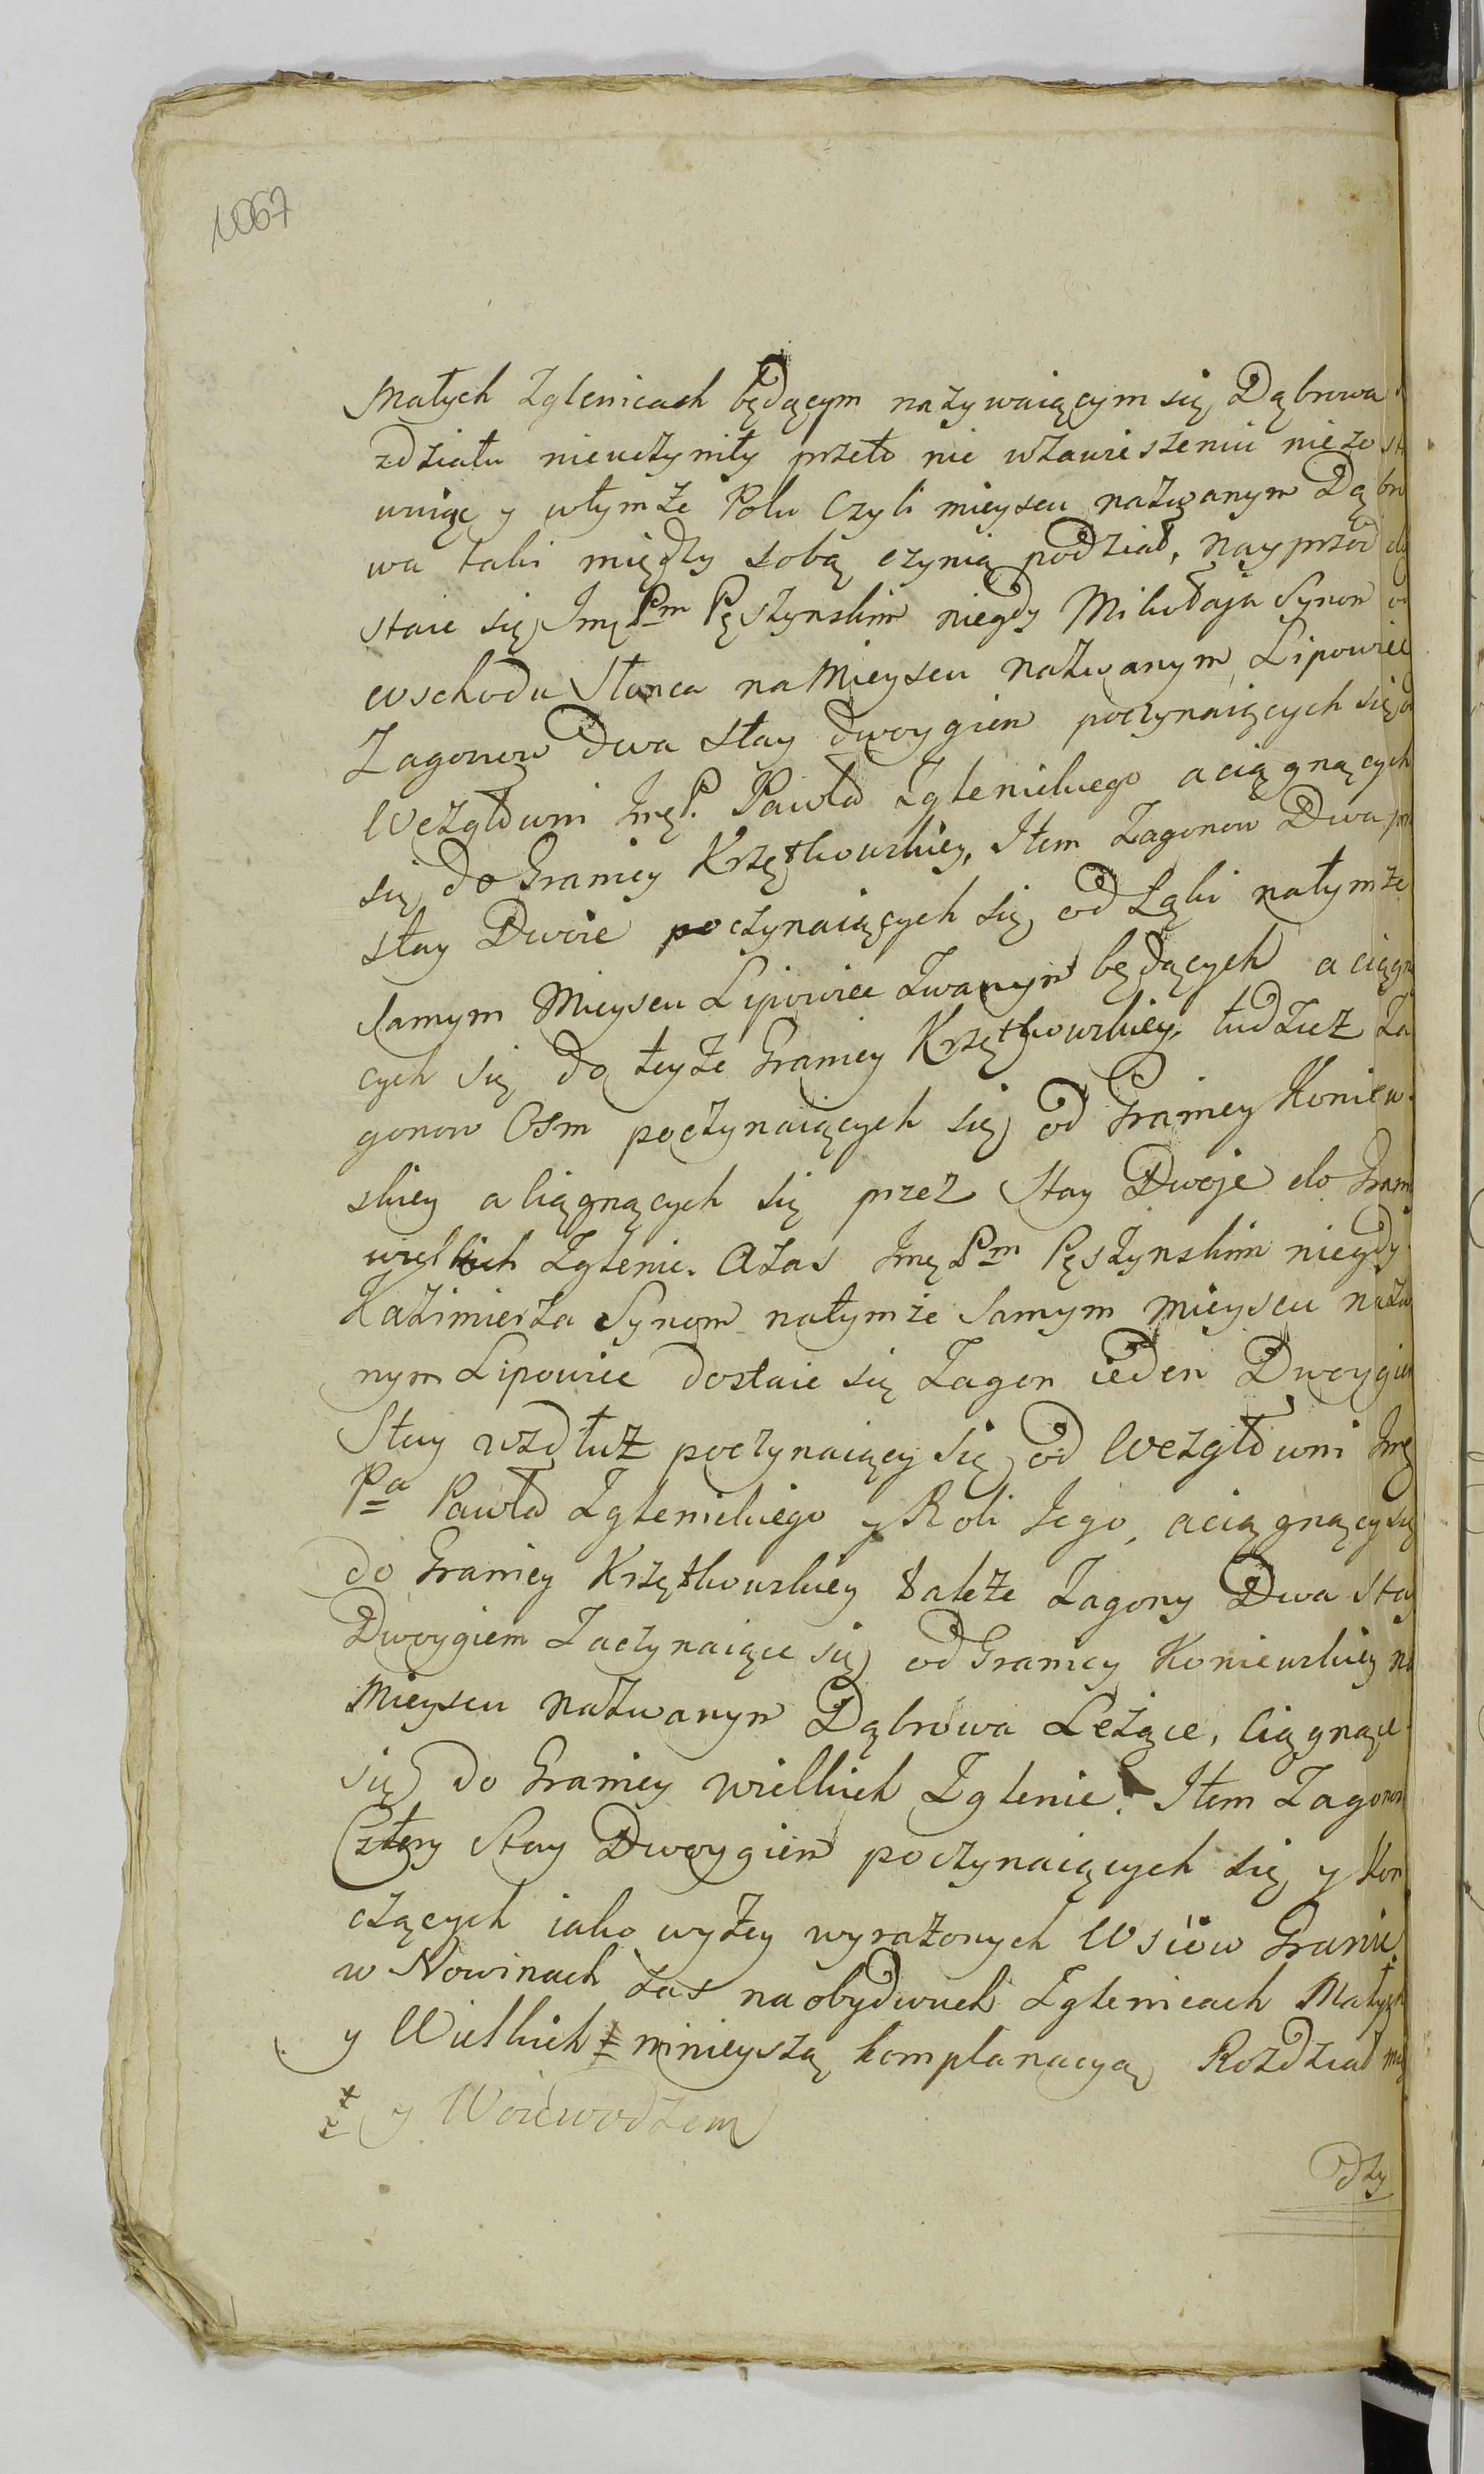 1067
Małych Zglenicach będącym nazywaiącym się Dąbrowa
zdziału nieuczyniły przeto nie wzawieszeniu niezost
uuiąc y wtymże Polu Czyli mieyscu nazwanym Dąbro
wa taki między sobą czynią podział, naypřzód do
staie się Jmę Pm Pęszynskim niegdy Mikołaja Synom od
wschodu Słonca na Mieyscu nazwanym Lipowiec
Zagonow dwa stay dwoygiem poczynaiących się od
Wezgłowni Jmę P. Pawła Zglenickiego aciągnących
się do Granicy Krzętkowskiey, Item Zagonow Dwa prz
stay Dwoie poczynaiących się od Łąki natymże
samym Mieyscu Lipowiec Zwanym będących a ciągną
cych się do teyże Granicy Krzętkowskiey, tudzież Za
gonow Osm poczynaiących się od Granicy Koniew
skiey aciągnących się przez Stay Dwoje do Grani
wielkich Zglenic. Azas Jmę Pm Pęszynskim niegdy
Kazimierza Synom natymże Samym mieyscu nazwa
nym Lipowiec dostaie się Zagon ieden Dwoygiem
Stay wzdłuż poczynaiący się od Wezgłowni Jmę
Pa Pawła Zglenickiego y Roli Jego, aciągnący się
do Granicy Krzętkowskiey takze Zagony Dwa Stay
Dwoygiem Zaczynaiące się od Granicy Koniewskiey na
Mieyscu nazwanym Dąbrowa Leżące, ciągnące
się do Granicy wielkich Zglenic. Item Zagonow
Cztery Stay Dwoygiem poczynaiących się y Kon
czących iako wyżey wyrażonych Wsiów Granic
w Nowinach zas naobydwuch Zglenicach Małych
y Wielkich ninieyszą komplanacyą Rozdział mię
y Woiewodzem
dzy